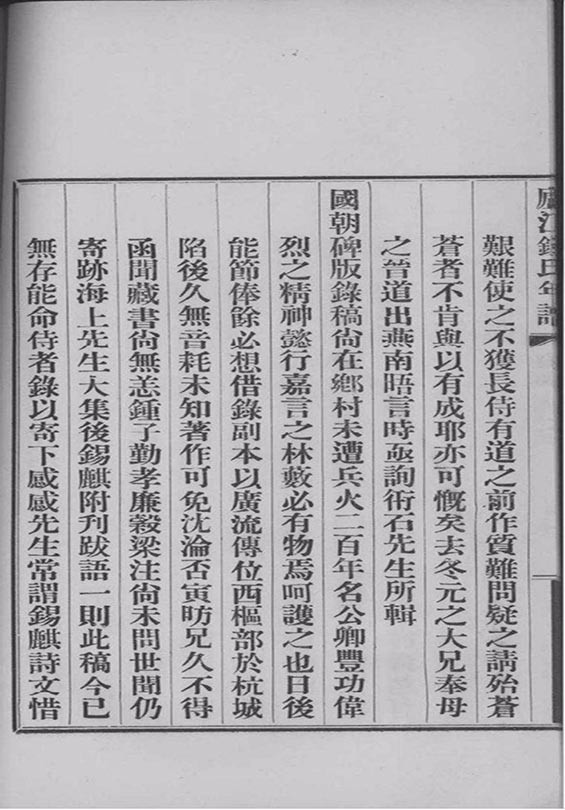 廬江錢氏年譜
艱難使之不獲長侍有道之前作質難問疑之請殆蒼
蒼者不肯與以有成耶亦可慨矣去冬元之大兄奉母
之晉道出燕南晤言時亟詢術石先生所輯
國朝碑版錄稿尙在鄉村未遭兵火二百年名公卿豐功偉
烈之精神懿行嘉言之林藪必有物焉呵護之也日後
能節俸餘必想借錄副本以廣流傳位西樞部於杭城
陷後久無音耗未知著作可免沈淪否寅昉兄久不得
函聞藏書尙無恙鍾子勤孝廉穀梁注尙未問世聞仍
寄跡海上先生大集後錫麒附刊跋語一則此稿今已
無存能命侍者錄以寄下感感先生常謂錫麒詩文惜